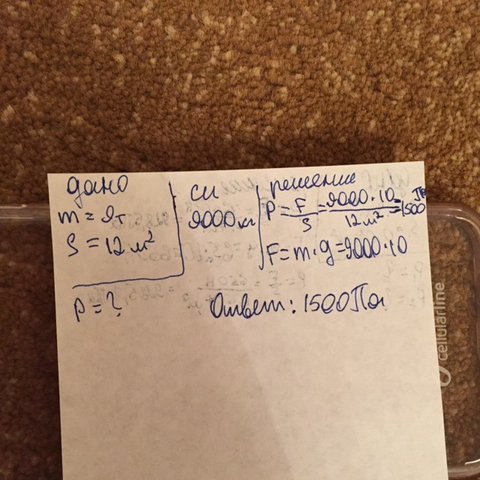 дано
m = 9т
S = 12 м²
P = ?
си
9000 кг
решение
P = F/S = 9000·10/12 м² = 1500 Па
F = m·g = 9000·10
Ответ: 1500 Па
cellularline